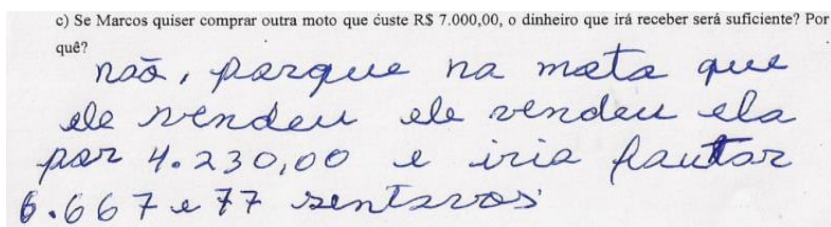 c) Se Marcos quiser comprar outra moto que custe R$ 7.000,00, o dinheiro que irá receber será suficiente? Por
quê?
não, parque na mota que
ele vendeu ele vendeu ela
por 4.230,00 e iria fautar
6.667 e 77 sentavos